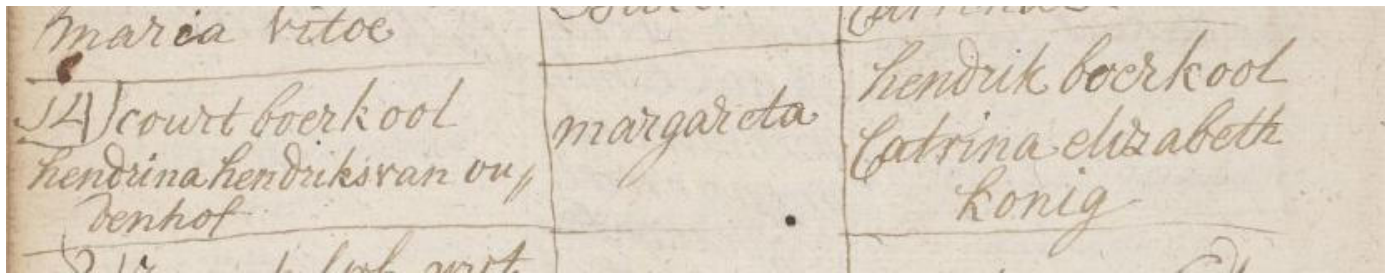 maria vitoe
14) court boerkool
hendrina hendriks van ou„
denhof
margareta
hendrik boerkool
Catrina elizabeth
konig